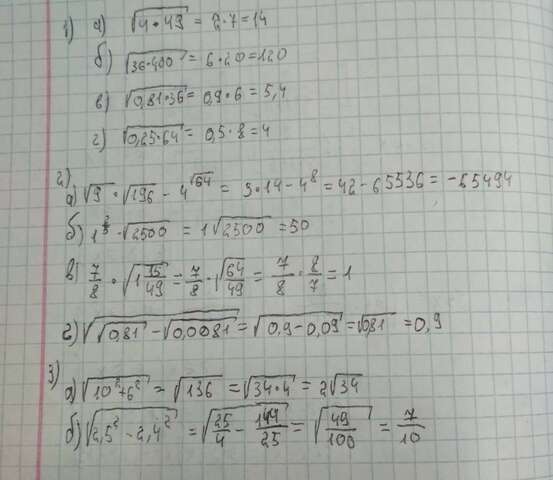 1) а) √4·49 = 2·7=14
б) √36·400 = 6·20=120
в) √0,81·36 = 0,9·6=5,4
г) √0,25·64 = 0,5·8=4
2)
а) √9·√196 - 4^√64 = 3·14-4⁸=42-65536=-65494
б) 1^⅔·√2500 = 1√2500=50
в) 7/8·√1 15/49 = 7/8·√64/49 = 7/8·8/7=1
г) √√0,81-√0,0081=√0,9-0,09=√0,81=0,9
3)
а) √10²+6² = √136 = √34·4 = 2√34
б) √2,5²-2,4² = √25/4-144/25 = √49/100 = 7/10